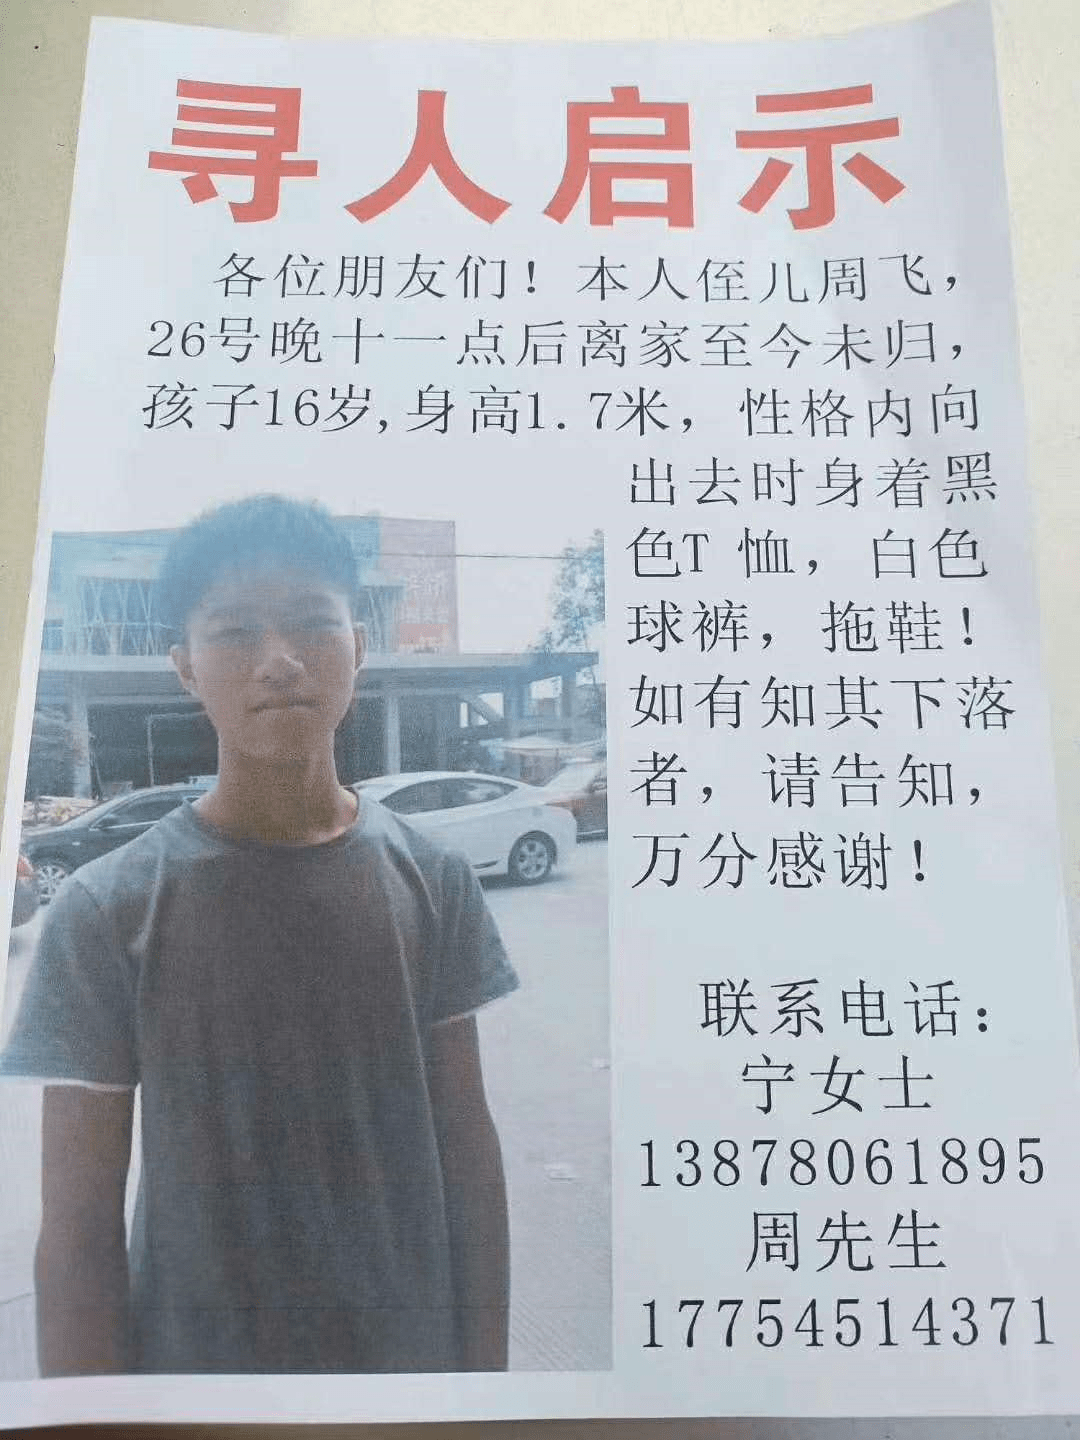 寻人启示
各位朋友们！本人侄儿周飞，
26号晚十一点后离家至今未归，
孩子16岁,身高1.7米，性格内向
出去时身着黑
色T 恤，白色
球裤，拖鞋！
如有知其下落
者，请告知，
万分感谢！
联系电话：
宁女士
13878061895
周先生
17754514371